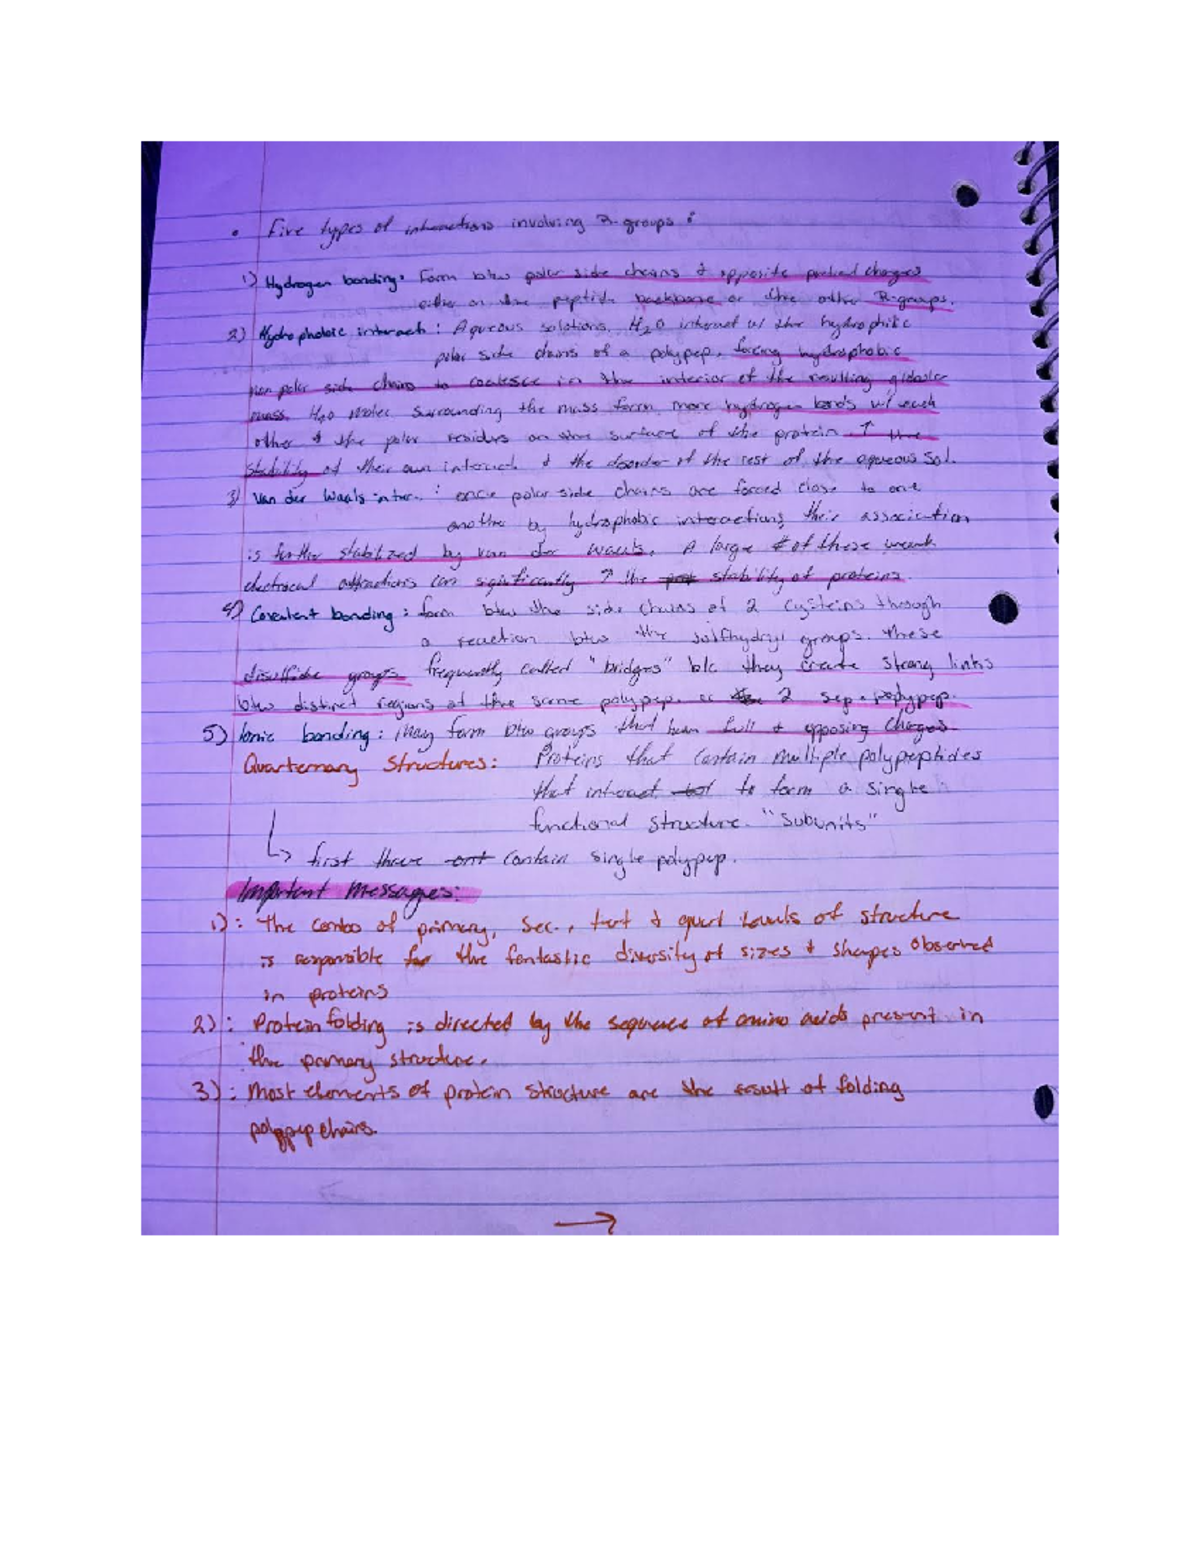 • Five types of interactions involving R-groups:
1) Hydrogen bonding: Form btw polar side chains & opposite partial charges
either on the peptide backbone or the other R-groups.
2) Hydrophobic interact: Aqueous solutions, H2O interact w/ the hydrophilic
polar side chains of a polypep, forcing hydrophobic
non polar side chains to coalesce in the interior of the resulting globular
mass. H2O molec. surrounding the mass form more hydrogen bonds w/ each
other & the polar residues on the surface of the protein ↑ the
stability of their own interact. & the disorder of the rest of the aqueous sol.
3) Van der Waals inter.: once polar side chains are forced close to one
another by hydrophobic interactions, their association
is further stabilized by van der waals. A large # of these weak
electrical attractions can significantly ↑ the stability of proteins.
4) Covalent bonding: form btw the side chains of 2 cysteins through
a reaction btw the sulfhydryl groups. These
disulfide groups frequently called "bridges" b/c they create strong links
btw distinct regions of the same polypep. or 2 sep. polypep.
5) Ionic bonding: May form btw groups that have full & opposing charges
Quarternary Structures: Proteins that contain multiple polypeptides
that interact to form a single
functional structure. "Subunits"
↳ first three contain single polypep.
Important Messages:
1): The combo of primary, sec., tert & quart levels of structure
is responsible for the fantastic diversity of sizes & shapes observed
in proteins
2): Protein folding is directed by the sequence of amino acids present in
the primary structure.
3): Most elements of protein structure are the result of folding
polypep chains.
→